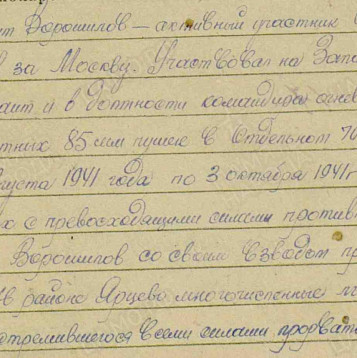 нт Ворошилов — активный участник
за Москву. Участвовал на Запа
в должности командира огнев
тных 85 мм пушек в Отдельном 76
густа 1941 года по 3 октября 1941г
с превосходящими силами против
Ворошилов со своим взводом пр
в районе Ярцево многочисленные
стремившегося всеми силами прорвать